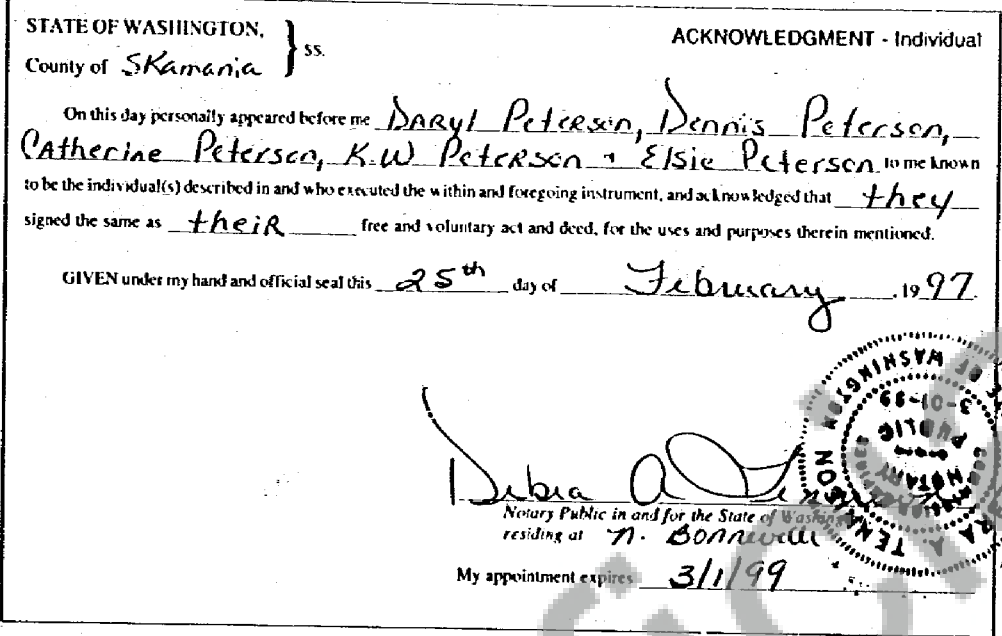 STATE OF WASHINGTON, } ss. ACKNOWLEDGMENT - Individual
County of SKamania
On this day personally appeared before me DARyl Peterson, Dennis Peterson,
CAtherine Peterson, K.W Peterson + Elsie Peterson to me known
to be the individual(s) described in and who executed the within and foregoing instrument, and acknowledged that they
signed the same as theiR free and voluntary act and deed, for the uses and purposes therein mentioned.
GIVEN under my hand and official seal this 25th day of February, 1997.
Debra A
Notary Public in and for the State of Washing
residing at N. Bonneville
My appointment expires 3/1/99
NOTARY
PUBLIC
3-01-99
OF WASHINGTON